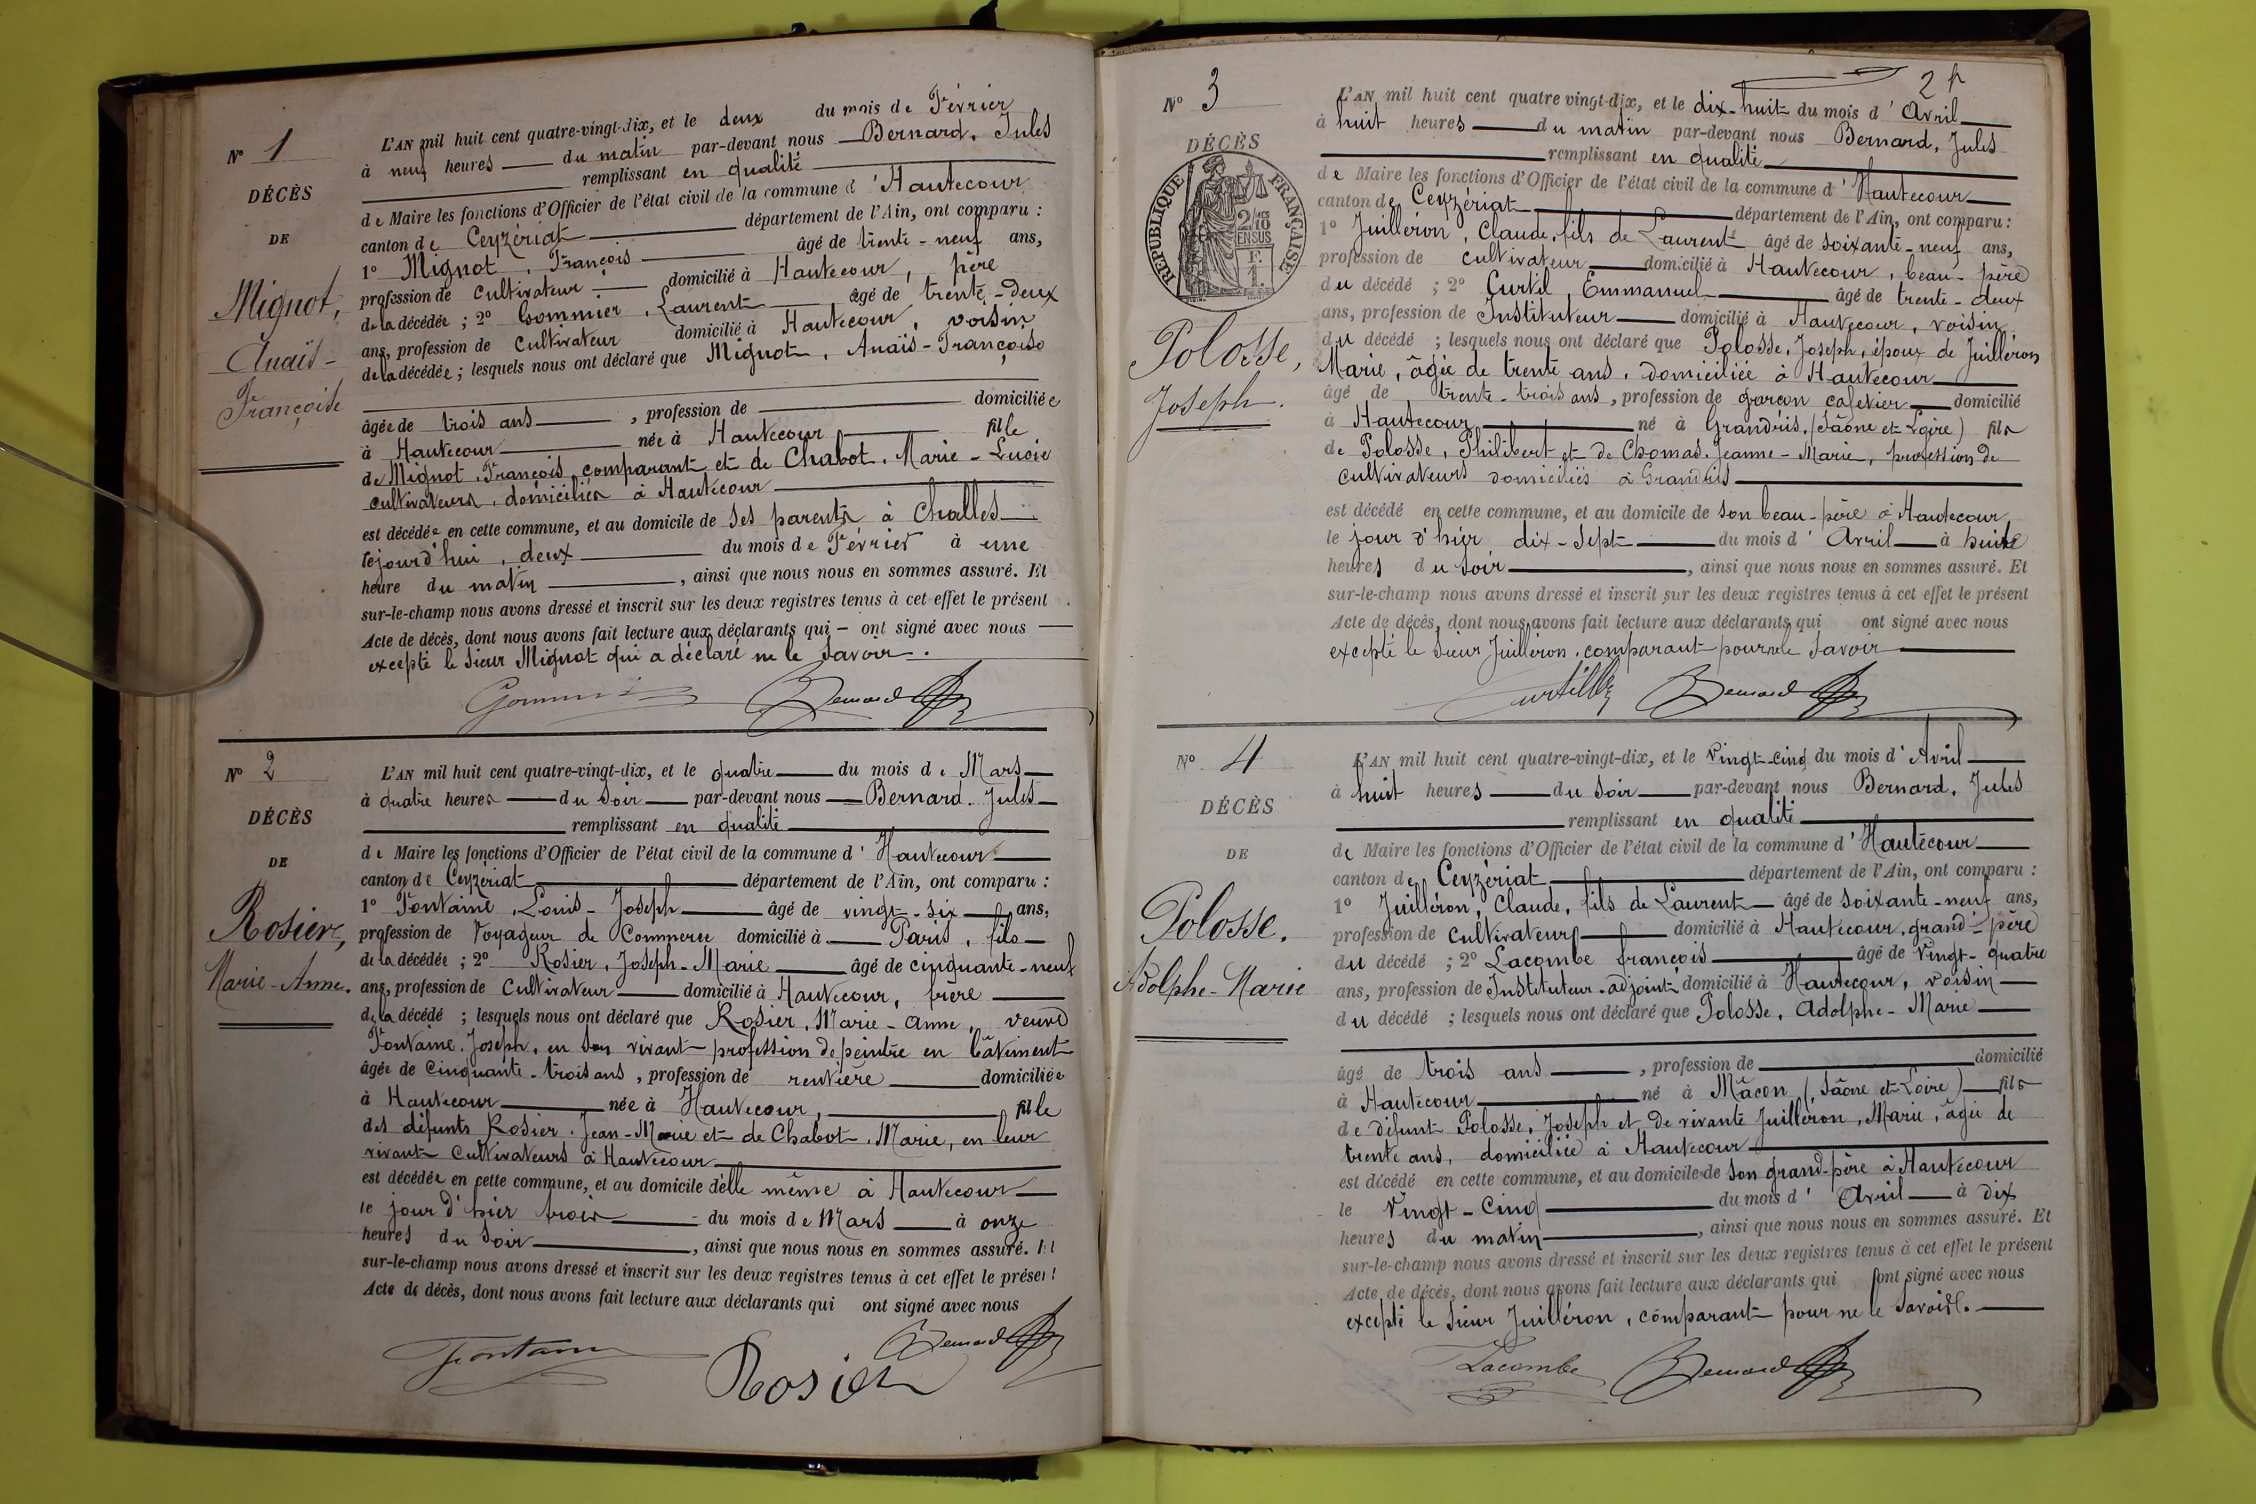 N° 1
DÉCÈS
DE
Mignot,
Anaïs-
Françoise
L'AN mil huit cent quatre-vingt-dix, et le deux du mois de Février
à neuf heures du matin par-devant nous Bernard, Jules
remplissant en qualité
de Maire les fonctions d'Officier de l'état civil de la commune d'Hautecour
canton de Ceyzériat département de l'Ain, ont comparu :
1° Mignot, François âgé de trente-neuf ans,
profession de cultivateur domicilié à Hautecour, père
de la décédée ; 2° Gommier, Laurent âgé de trente-deux
ans, profession de cultivateur domicilié à Hautecour, voisin
de la décédée ; lesquels nous ont déclaré que Mignot, Anaïs-Françoise
âgée de trois ans, profession de domiciliée
à Hautecour née à Hautecour fille
de Mignot, François, comparant et de Chabot, Marie-Lucie
cultivateurs, domiciliés à Hautecour
est décédée en cette commune, et au domicile de ses parents à Challes
lejourd'hui, deux du mois de Février à une
heure du matin, ainsi que nous nous en sommes assuré. Et
sur-le-champ nous avons dressé et inscrit sur les deux registres tenus à cet effet le présent
Acte de décès, dont nous avons fait lecture aux déclarants qui ont signé avec nous
excepté le sieur Mignot qui a déclaré ne le savoir.
Gommier Bernard
N° 2
DÉCÈS
DE
Rosier,
Marie-Anne.
L'AN mil huit cent quatre-vingt-dix, et le quatre du mois de Mars
à quatre heures du soir par-devant nous Bernard, Jules
remplissant en qualité
de Maire les fonctions d'Officier de l'état civil de la commune d'Hautecour
canton de Ceyzériat département de l'Ain, ont comparu :
1° Fontaine, Louis-Joseph âgé de vingt-six ans,
profession de Voyageur de Commerce domicilié à Paris, fils
de la décédée ; 2° Rosier, Joseph-Marie âgé de cinquante-neuf
ans, profession de cultivateur domicilié à Hautecour, frère
de la décédé ; lesquels nous ont déclaré que Rosier, Marie-Anne, veuve
Fontaine, Joseph, en son vivant profession de peintre en bâtiment
âgée de cinquante-trois ans, profession de rentière domiciliée
à Hautecour née à Hautecour, fille
des défunts Rosier, Jean-Marie et de Chabot, Marie, en leur
vivant cultivateurs à Hautecour
est décédée en cette commune, et au domicile d'elle même à Hautecour
le jour d'hier trois du mois de Mars à onze
heures du soir, ainsi que nous nous en sommes assuré. Et
sur-le-champ nous avons dressé et inscrit sur les deux registres tenus à cet effet le présent
Acte de décès, dont nous avons fait lecture aux déclarants qui ont signé avec nous
Fontaine Rosier Bernard
2
N° 3
DÉCÈS
RÉPUBLIQUE FRANÇAISE
2/10 EN SUS
Polosse,
Joseph.
L'AN mil huit cent quatre vingt-dix, et le dix-huit du mois d'Avril
à huit heures du matin par-devant nous Bernard, Jules
remplissant en qualité
de Maire les fonctions d'Officier de l'état civil de la commune d'Hautecour
canton de Ceyzériat département de l'Ain, ont comparu :
1° Juilléron, Claude, fils de Laurent âgé de soixante-neuf ans,
profession de cultivateur domicilié à Hautecour, beau-père
du décédé ; 2° Curtil, Emmanuel âgé de trente-deux
ans, profession de Instituteur domicilié à Hautecour, voisin
du décédé ; lesquels nous ont déclaré que Polosse, Joseph, époux de Juilléron
Marie, âgée de trente ans, domiciliée à Hautecour
âgé de trente-trois ans, profession de garçon cafetier domicilié
à Hautecour né à Grandris, (Sâone et Loire) fils
de Polosse, Philibert et de Chomas, Jeanne-Marie, profession de
cultivateurs domiciliés à Grandris
est décédé en cette commune, et au domicile de son beau-père à Hautecour
le jour d'hier, dix-sept du mois d'Avril à huit
heures du soir, ainsi que nous nous en sommes assuré. Et
sur-le-champ nous avons dressé et inscrit sur les deux registres tenus à cet effet le présent
Acte de décès, dont nous avons fait lecture aux déclarants qui ont signé avec nous
excepté le sieur Juilléron, comparant pour ne le savoir
Curtil Bernard
N° 4
DÉCÈS
DE
Polosse.
Adolphe-Marie
L'AN mil huit cent quatre-vingt-dix, et le vingt-cinq du mois d'Avril
à huit heures du soir par-devant nous Bernard, Jules
remplissant en qualité
de Maire les fonctions d'Officier de l'état civil de la commune d'Hautecour
canton de Ceyzériat département de l'Ain, ont comparu :
1° Juilléron, Claude, fils de Laurent âgé de soixante-neuf ans,
profession de cultivateur domicilié à Hautecour, grand-père
du décédé ; 2° Lacombe françois âgé de vingt-quatre
ans, profession de Instituteur-adjoint domicilié à Hautecour, voisin
du décédé ; lesquels nous ont déclaré que Polosse, Adolphe-Marie
âgé de trois ans, profession de domicilié
à Hautecour né à Mâcon (Sâone et Loire) fils
de défunt Polosse, Joseph et de vivante Juilléron, Marie, âgée de
trente ans, domiciliée à Hautecour
est décédé en cette commune, et au domicile de son grand-père à Hautecour
le vingt-cinq du mois d'Avril à dix
heures du matin, ainsi que nous nous en sommes assuré. Et
sur-le-champ nous avons dressé et inscrit sur les deux registres tenus à cet effet le présent
Acte de décès, dont nous avons fait lecture aux déclarants qui sont signé avec nous
excepté le sieur Juilléron, comparant pour ne le savoir.
Lacombe Bernard